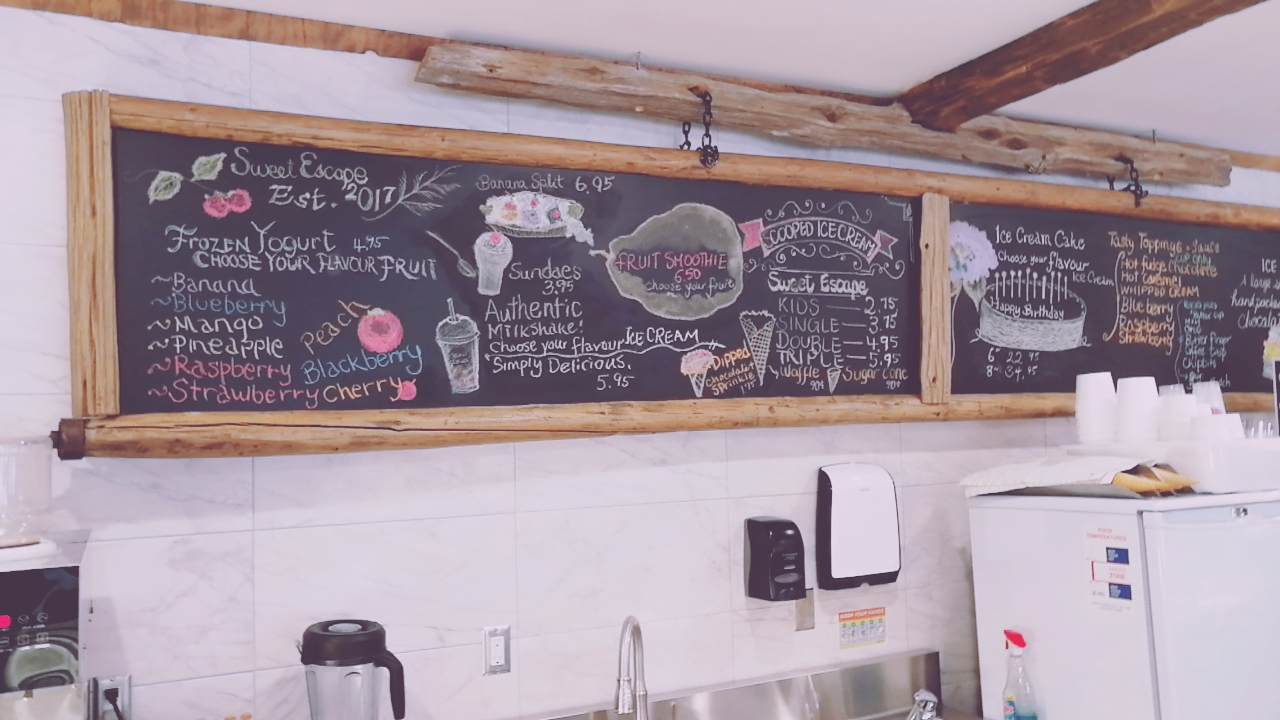 Sweet Escape
Est. 2017
Frozen Yogurt 4.95
CHOOSE YOUR FLAVOUR FRUIT
~Banana
~Blueberry
~Mango
~Pineapple
~Raspberry
~Strawberry
Peach
Blackberry
Cherry
Banana Split 6.95
Sundaes
3.95
Authentic
Milkshake!
Choose your flavour Ice CREAM
"Simply Delicious.
5.95
FRUIT SMOOTHIE
6.50
choose your fruit
Dipped
Chocolate
Sprinkle
1.75
SCOOPED ICE CREAM
Sweet Escape
KIDS - 2.75
SINGLE - 3.75
DOUBLE - 4.95
TRIPLE - 5.95
~Waffle
90¢
Sugar Cone
90¢
Ice Cream Cake
Choose your flavour
Ice Cream
Happy Birthday
6" 22.95
8" 34.95
Tasty Toppings & Sauce
Hot fudge chocolate
Hot Caramel
WHIPPED CREAM
Blueberry
Raspberry
Strawberry
ICE
A large
hand packed
FOOD
TEMPERATURES